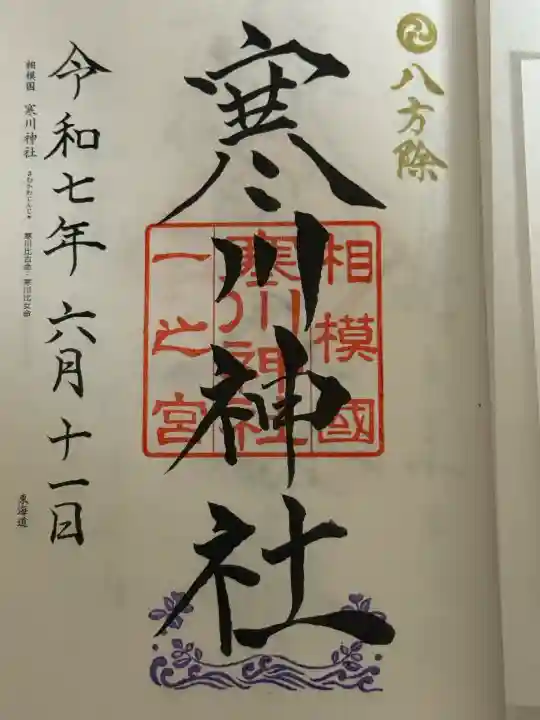 八方除
寒川神社
相模國
寒川神社
一之宮
令和七年 六月 十一日
相模国 寒川神社 さむかわじんじゃ 寒川比古命・寒川比女命
東海道